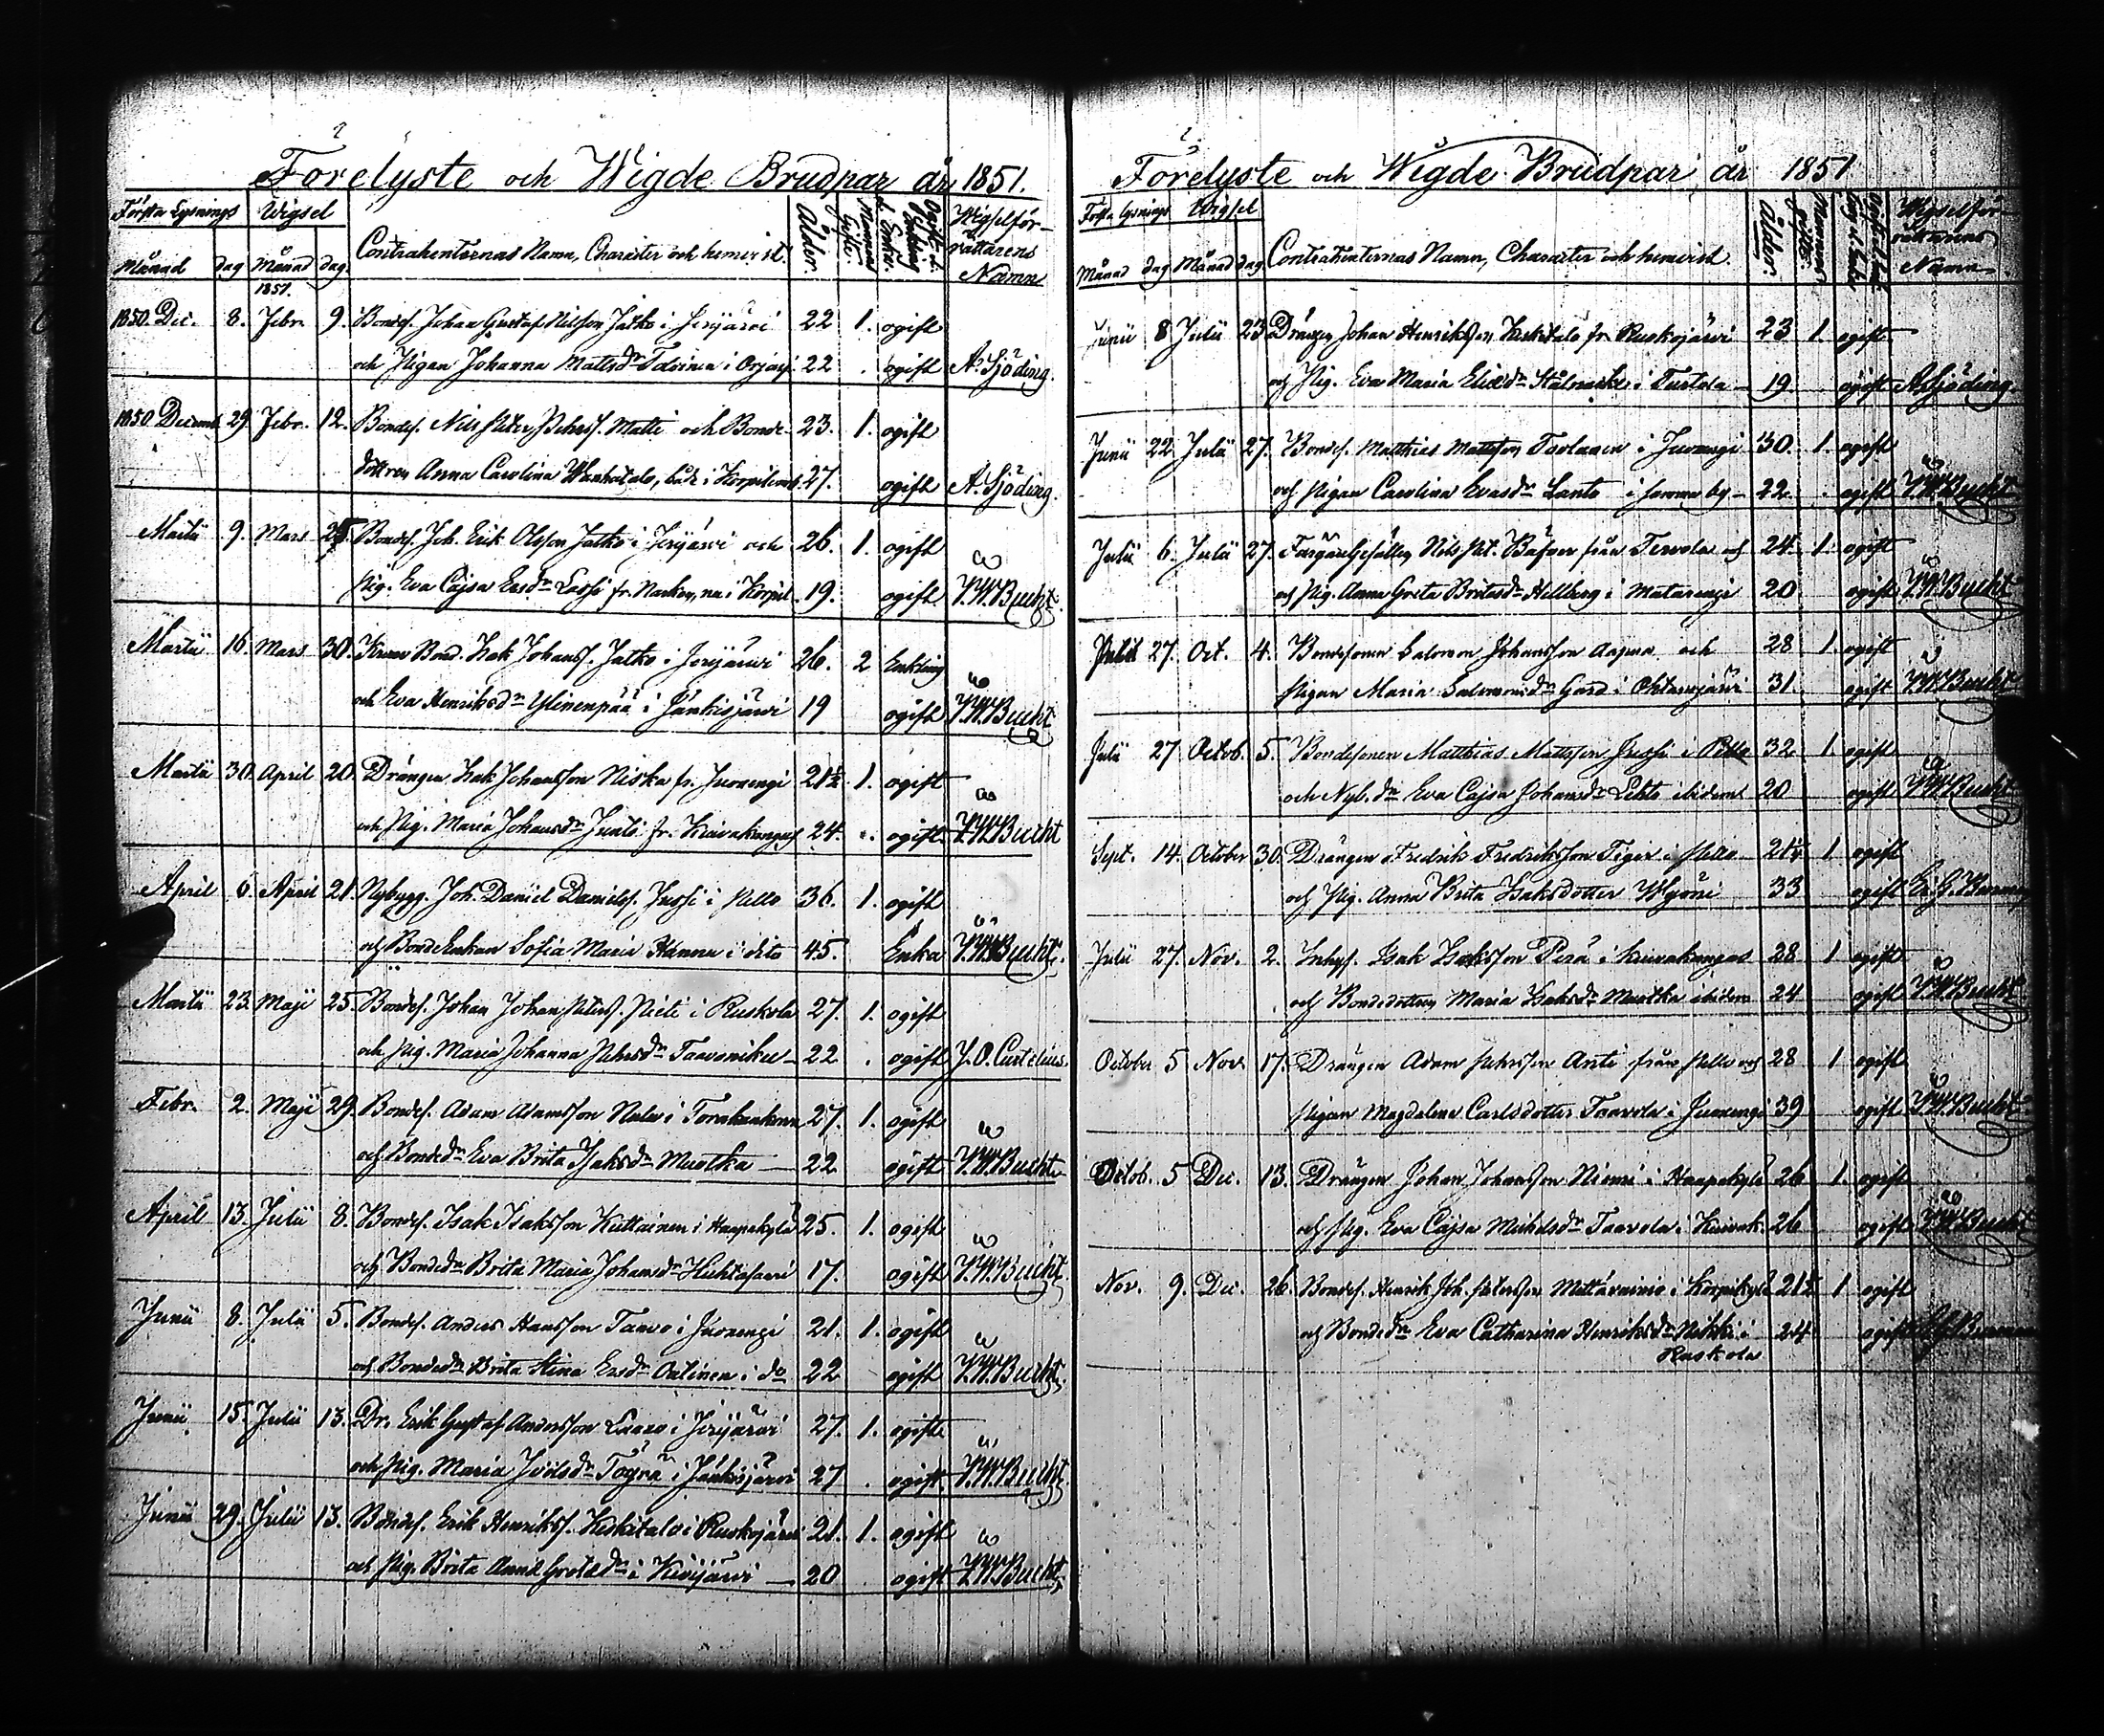 Förelyste och Wigde Brudpar år 1851.
Första Lysnings Wigsel
Månad dag Månad dag Contrahenternas Namn, Charakter och hemvist. Ålder. Mannens Gifte. Wigselför-
rättarens
Namn
1851.
1850. Dec. 8. Febr. 9. Bondes. Johan Gustaf Nilsson Jatko i Jerijärvi 22 1. ogift
och Pigan Johanna Mattsdr 22 ogift A. Sjöding.
1850 Decemb. 29. Febr. 12. Bondes. Nils Petter Pehrss. Matti och Bonde- 23. 1. ogift
dottren Anna Carolina Wanhatalo, båd. i Korpilomb. 27. ogift A. Sjöding.
Martii 9. Mars Bondes. Joh. Erik Olsson Jatko i Jerijärvi och 26. 1. ogift
Pig. Eva Cajsa Ersdr Lassi fr. i Korpil. 19. ogift Bucht.
Martii 16. Mars 30. Isak Johanss. Jatko i Jerijärvi 26. 2 Enkling
och Eva Henriksdr Ylinenpää i Jänkisjärvi 19 ogift Bucht
Martii 30. April 20. Drängen Isak Johansson Niska fr. Juoxengi 21½ 1. ogift
och Pig. Maria Johansdr fr. Kuivakangas 24. ogift. Bucht
April 6. April 21. Nybygg. Joh. Daniel Daniels. Jussi i Pello 36. 1. ogift
och BondeEnkan Sofia Maria Hannu i dito 45. Enka Bucht.
Martii 23. Maji 25. Bondes. Johan Johan Peterss. Pieti i Ruskola 27. 1. ogift
och Pig. Maria Johanna Pehrsdr Taavoniku 22 ogift J. O. Curtelius.
Febr. 2. Maji 29. Bondes. Adam Adamsson 27. 1. ogift
och Bondedr Eva Brita Isaksdr Muotka 22 ogift Bucht
April 13. Julii 8. Bondes. Isak Isaksson Kuttainen i Haapakylä 25. 1. ogift
och Bondedr Brita Maria Johansdr Hiehtasaari 17. ogift Bucht.
Junii 8. Julii 5. Bondes. Anders Hansson Taavo i Juoxengi 21. 1. ogift
och Bondedr Brita Stina Ersdr i do 22 ogift Bucht.
Junii 15. Julii 13. Dr. Erik Gustaf Andersson i Jerijärvi 27. 1. ogift
och Pig. Maria Joelsdr Töyrä i Jänkisjärvi 27 ogift. Bucht
Junii 29. Julii 13. Bondes. Erik Henrikss. Keskitalo i Ruokojärvi 21. 1. ogift
och Pig. Brita Anna Gretasdr i Kivijärvi 20 ogift Bucht.
Förelyste och Wigde Brudpar år 1851
Första lysnings Wigsel
Månad dag Månad dag Contrahenternas Namn, Charakter och hemvist. Ålder. Wigselför-
rättarens
Namn
Junii 8 Julii 23 Drängen Johan Henriksson Keskitalo fr. Ruokojärvi 23 1. ogift
och Pig. Eva Maria Eliædr Stålnacke i Turtola 19. ogift A. Sjöding.
Junii 22. Julii 27. Bondes. Matthias Mattsson Tavlanen i Juoxengi 30. 1. ogift
och Pigan Carolina Evasdr Lanto i samma by 22. ogift Bucht
Julii 6. Julii 27. Nils Pet. Bäfver från Tervola och 24. 1. ogift
och Pig. Anna Greta Britasdr Hellberg i Matarengi 20 ogift Bucht
Julii 27. Oct. 4. Bondesonen Salomon Johansson och 28 1. ogift
Pigan Maria Salomonsdr Gard i Ohtanajärvi 31. ogift Bucht
Julii 27 Octob. 5. Bondesonen Matthias Mattsson Jussi i Pello 32 1. ogift
och Nyb.dr Eva Cajsa Johansdr Lehto ibidem 20 ogift Bucht
Sept. 14. October 30. Drängen Fredrik Fredriksson Tiger i Pello 1 ogift
och Pig. Anna Brita Isaksdotter 33 ogift
Julii 27. Nov. 2. Inhys. Isak Isaksson Perä i Kuivakangas 28 1 ogift
och Bondedottren Maria Isaksdr Muotka ibidem 24 ogift Bucht
October 5 Nov. 17. Drängen Adam Pehrsson Anti från Pello och 28 1 ogift
Pigan Magdalena Carlsdotter Taavola i Juoxengi 39 ogift Bucht
Octob. 5 Dec. 13. Drängen Johan Johansson Niemi i Haapakylä 26 1. ogift
och Pig. Eva Cajsa Michelsdr Taavola i Kuivak. 26 ogift Bucht
Nov. 9. Dec. 26. Bondes. Henrik Joh. Petersson i Korpikylä 21½ 1 ogift
och Bondedr Eva Catharina Henriksdr Nikki i 24 ogift
Ruskola